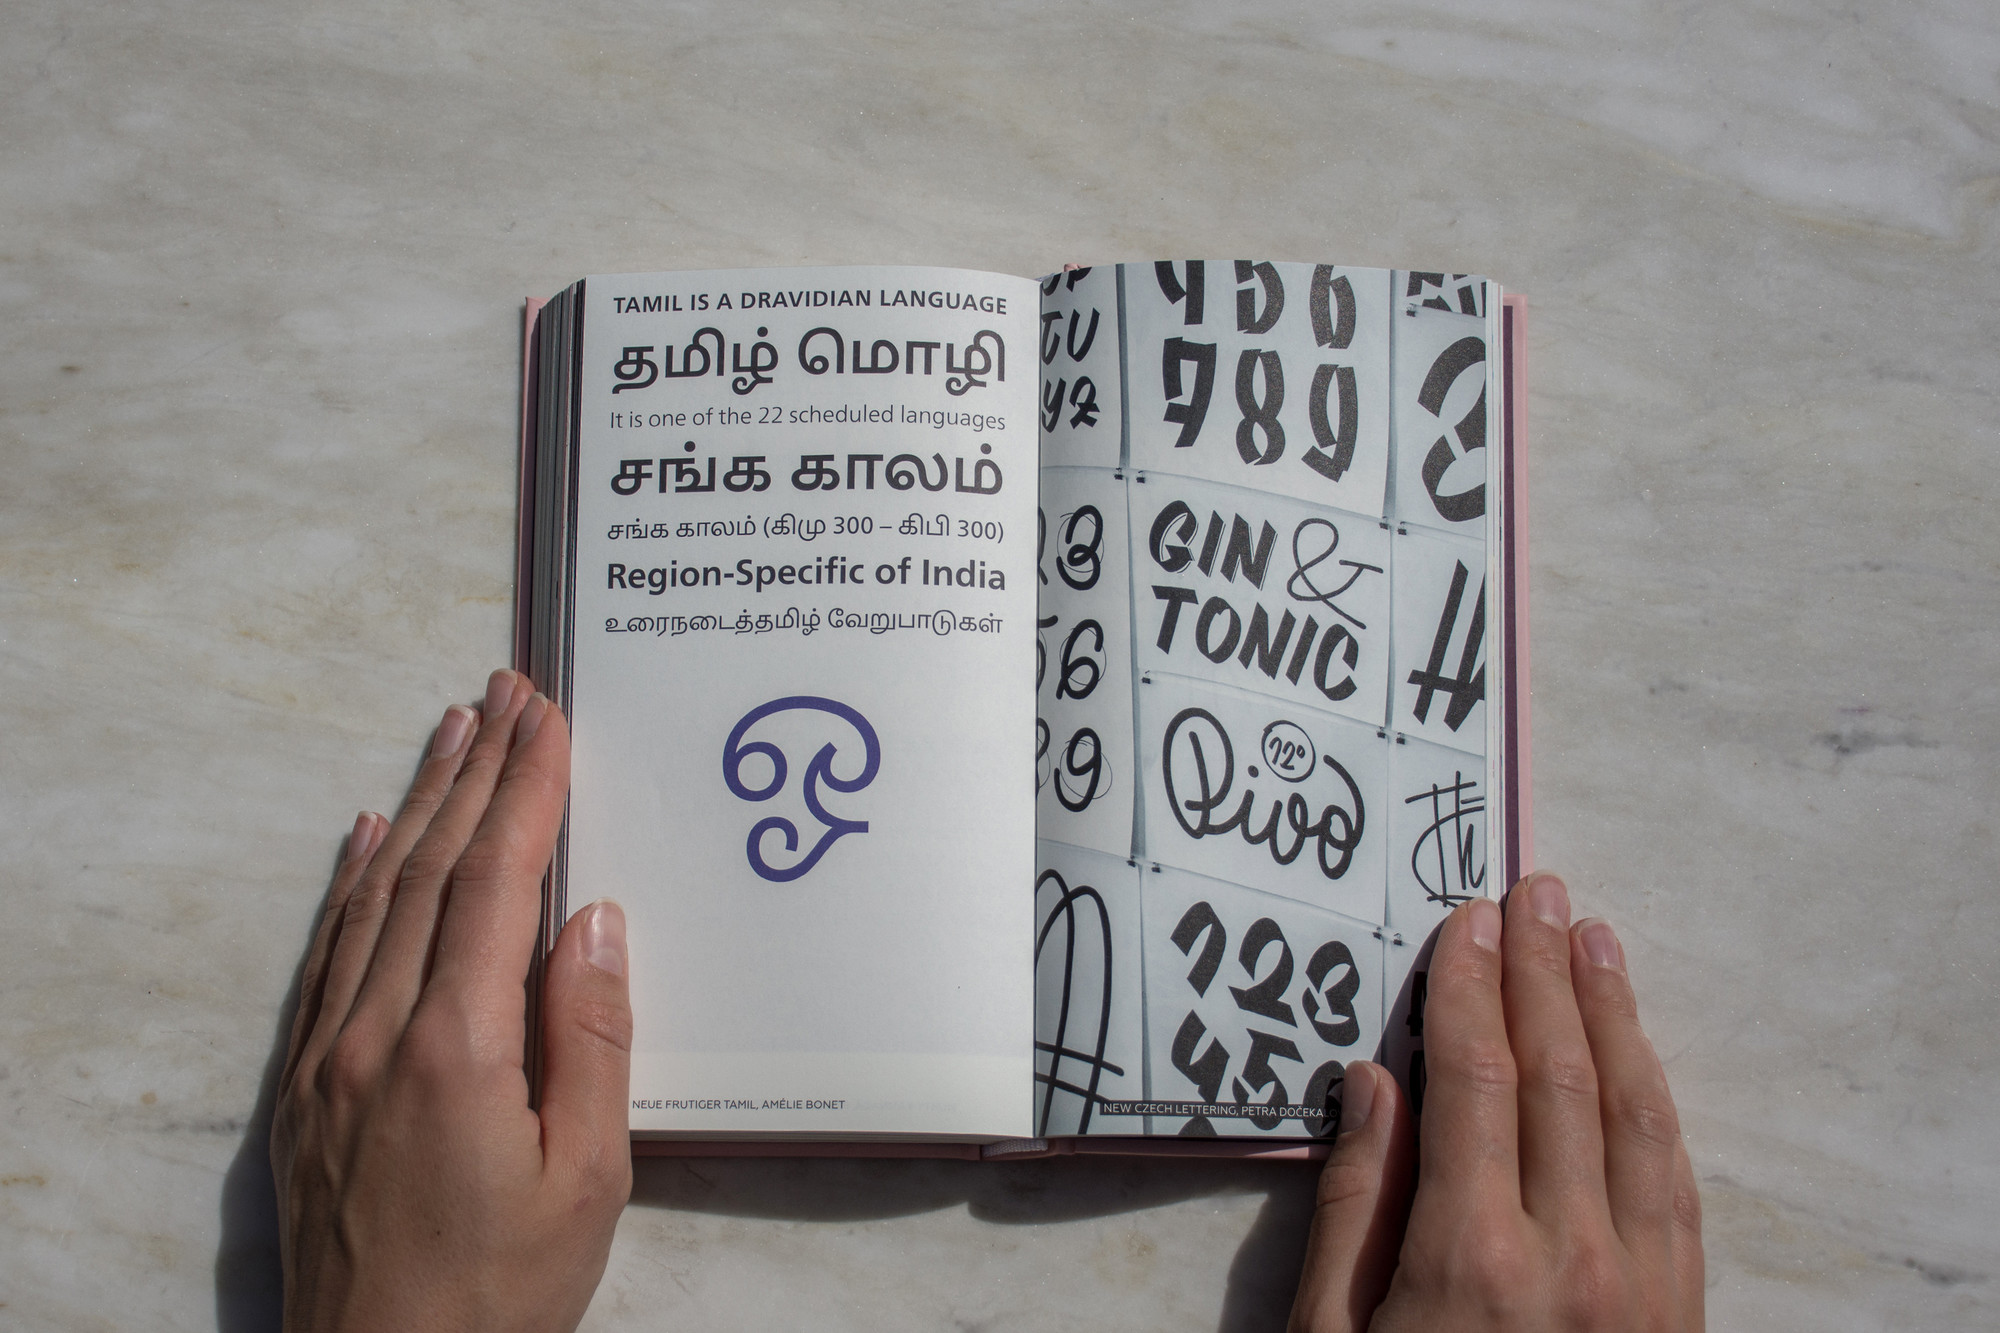 TAMIL IS A DRAVIDIAN LANGUAGE
தமிழ் மொழி
It is one of the 22 scheduled languages
சங்க காலம்
சங்க காலம் (கிமு 300 – கிபி 300)
Region-Specific of India
உரைநடைத்தமிழ் வேறுபாடுகள்
ஓ
NEUE FRUTIGER TAMIL, AMÉLIE BONET
TU
YZ
456
789
3
3
6
9
GIN &
TONIC
12°
Pivo
123
45
NEW CZECH LETTERING, PETRA